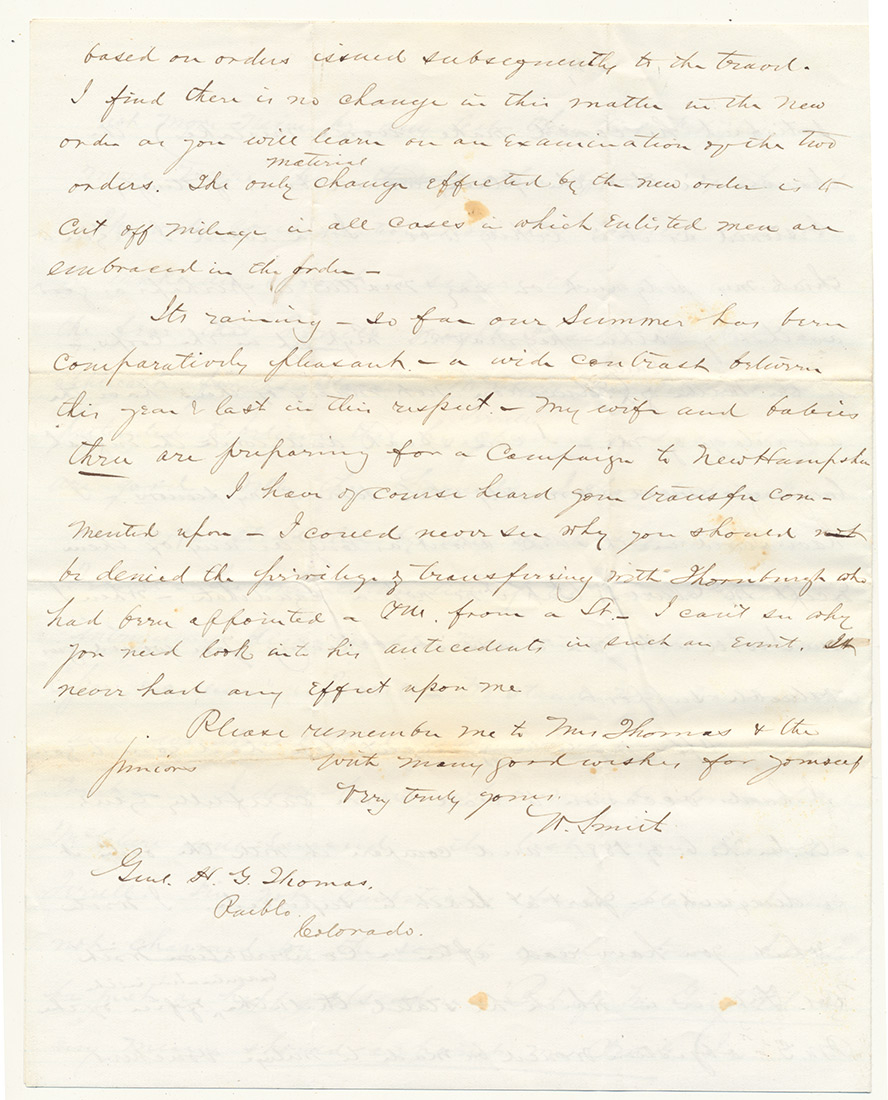 based on orders issued subsequently to the travel.
I find there is no change in this matter in the New
order as you will learn on an Examination of the two
material
orders. The only change effected by the new order is to
Cut off mileage in all cases in which Enlisted men are
embraced in the order —
Its raining — so far our Summer has been
Comparatively pleasant. — a wide contrast between
this year & last in this respect. — My wife and babies
three are preparing for a Campaign to New Hampshr
I have of course heard your transfer com-
mented upon — I could never see why you should not
be denied the privilege of transferring with Thornburgh who
had been appointed a QM. from a Lt. — I can't see why
you need look into his antecedents in such an Event. It
never had any Effect upon me
Please remember me to Mrs Thomas & the
juniors with many good wishes for yourself
Very truly yours.
W. Smith
Genl. H. G. Thomas.
Pueblo.
Colorado.